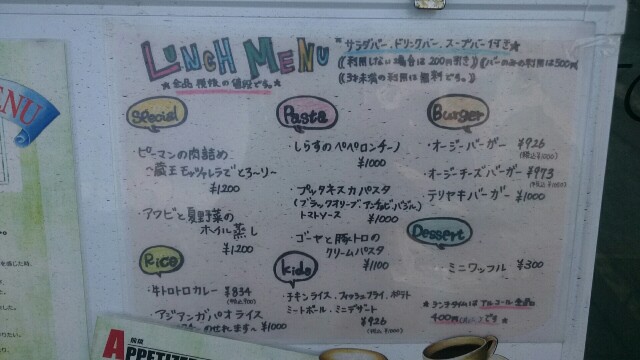 LUNCH MENU
★全品税抜の値段です。★
サラダバー、ドリンクバー、スープバー付き★
((利用しない場合は200円引き)) ((バーのみの利用は500円
((3才未満の利用は無料です。))
Special
・ピーマンの肉詰め
〜蔵王モッツァレラでとろ〜り〜
¥1,200
・アワビと夏野菜の
ホイル蒸し
¥1,200
Rice
・牛トロトロカレー ¥834
(税込900)
・アジアンガパオライス
のせれます〜 ¥1000
Pasta
・しらすのペペロンチーノ
¥1000
・プッタネスカパスタ
(ブラックオリーブ、アンチョビ、バジル)
トマトソース ¥1000
・ゴーヤと豚トロの
クリームパスタ
¥1100
kids
・チキンライス、フィッシュフライ、ポテト
ミートボール・ミニデザート
¥926
(税込1000)
Burger
・オージーバーガー ¥926
(税込¥1000)
・オージーチーズバーガー ¥973
・テリヤキバーガー ¥1000
Dessert
ミニワッフル ¥300
★ランチタイムはアルコール全品
400円です★
MENU
APPETIZE